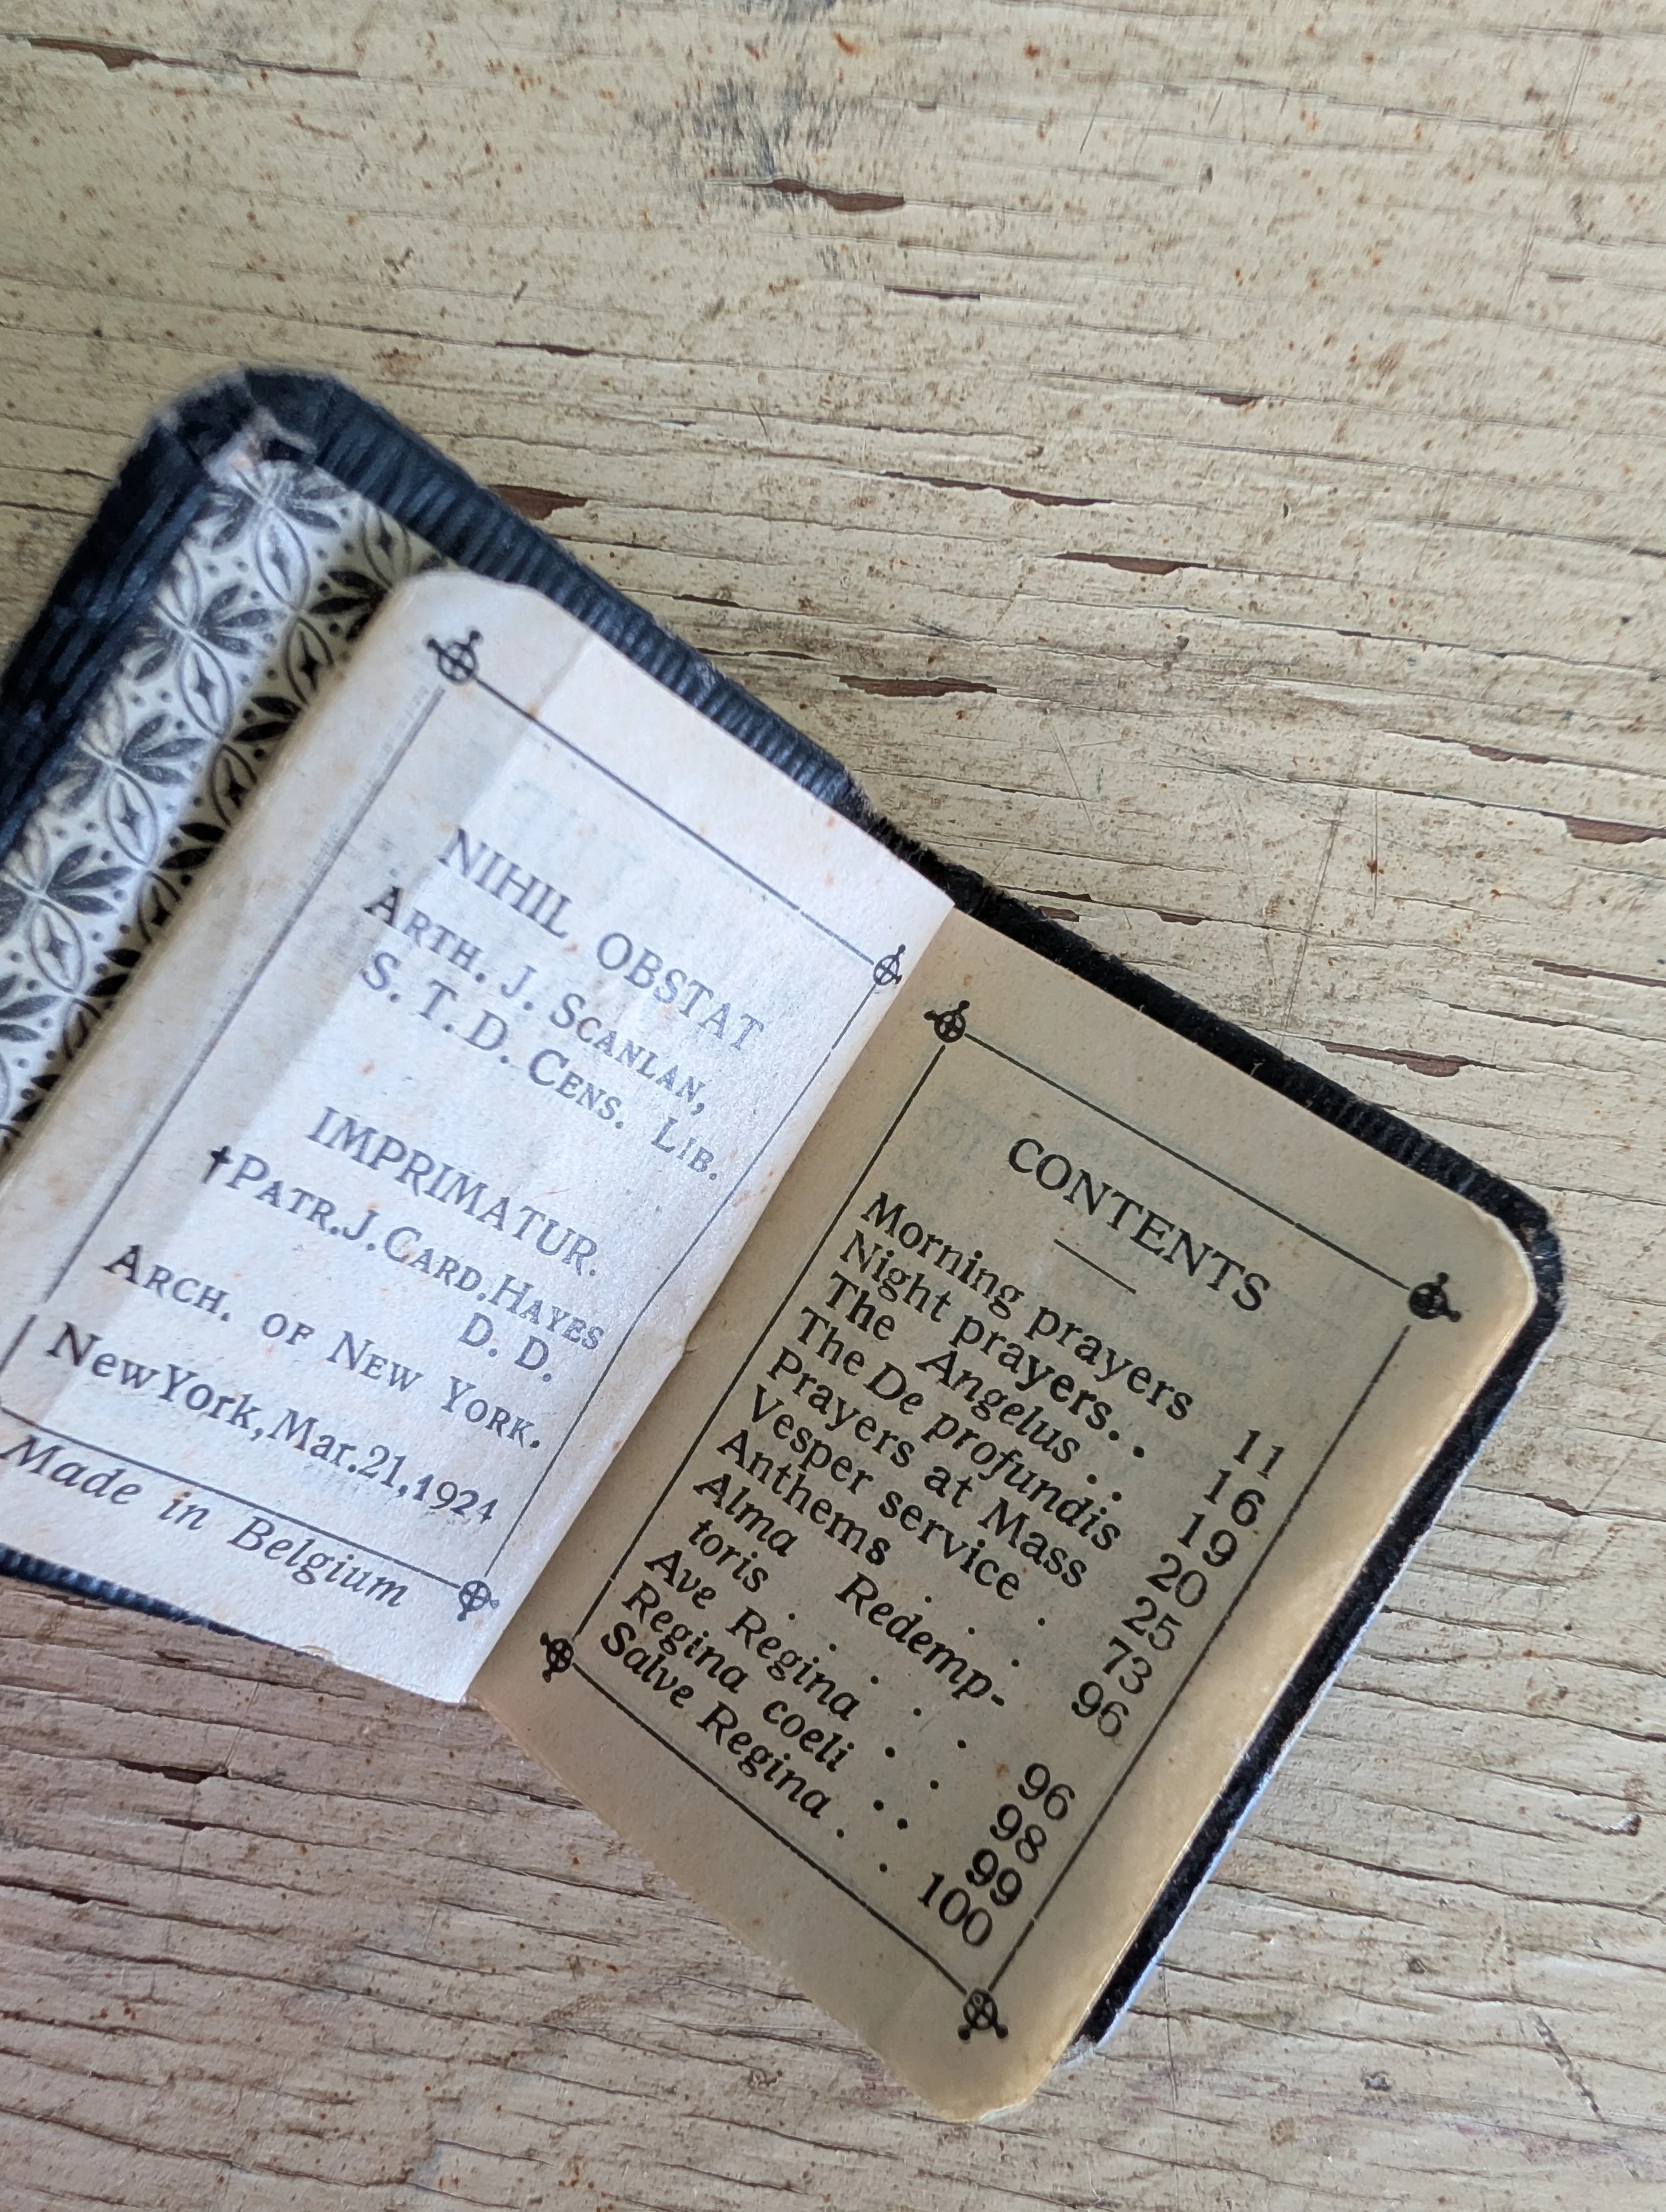 NIHIL OBSTAT
ARTH. J. SCANLAN,
S. T. D. CENS. LIB.
IMPRIMATUR.
†PATR. J. CARD. HAYES
D. D.
ARCH. OF NEW YORK.
New York, Mar. 21, 1924
Made in Belgium
CONTENTS
Morning prayers 11
Night prayers. . 16
The Angelus . . 19
The De profundis 20
Prayers at Mass 25
Vesper service . 73
Anthems . . . 96
Alma Redemp-
toris . . . . . 96
Ave Regina . . 98
Regina coeli . . 99
Salve Regina . . 100